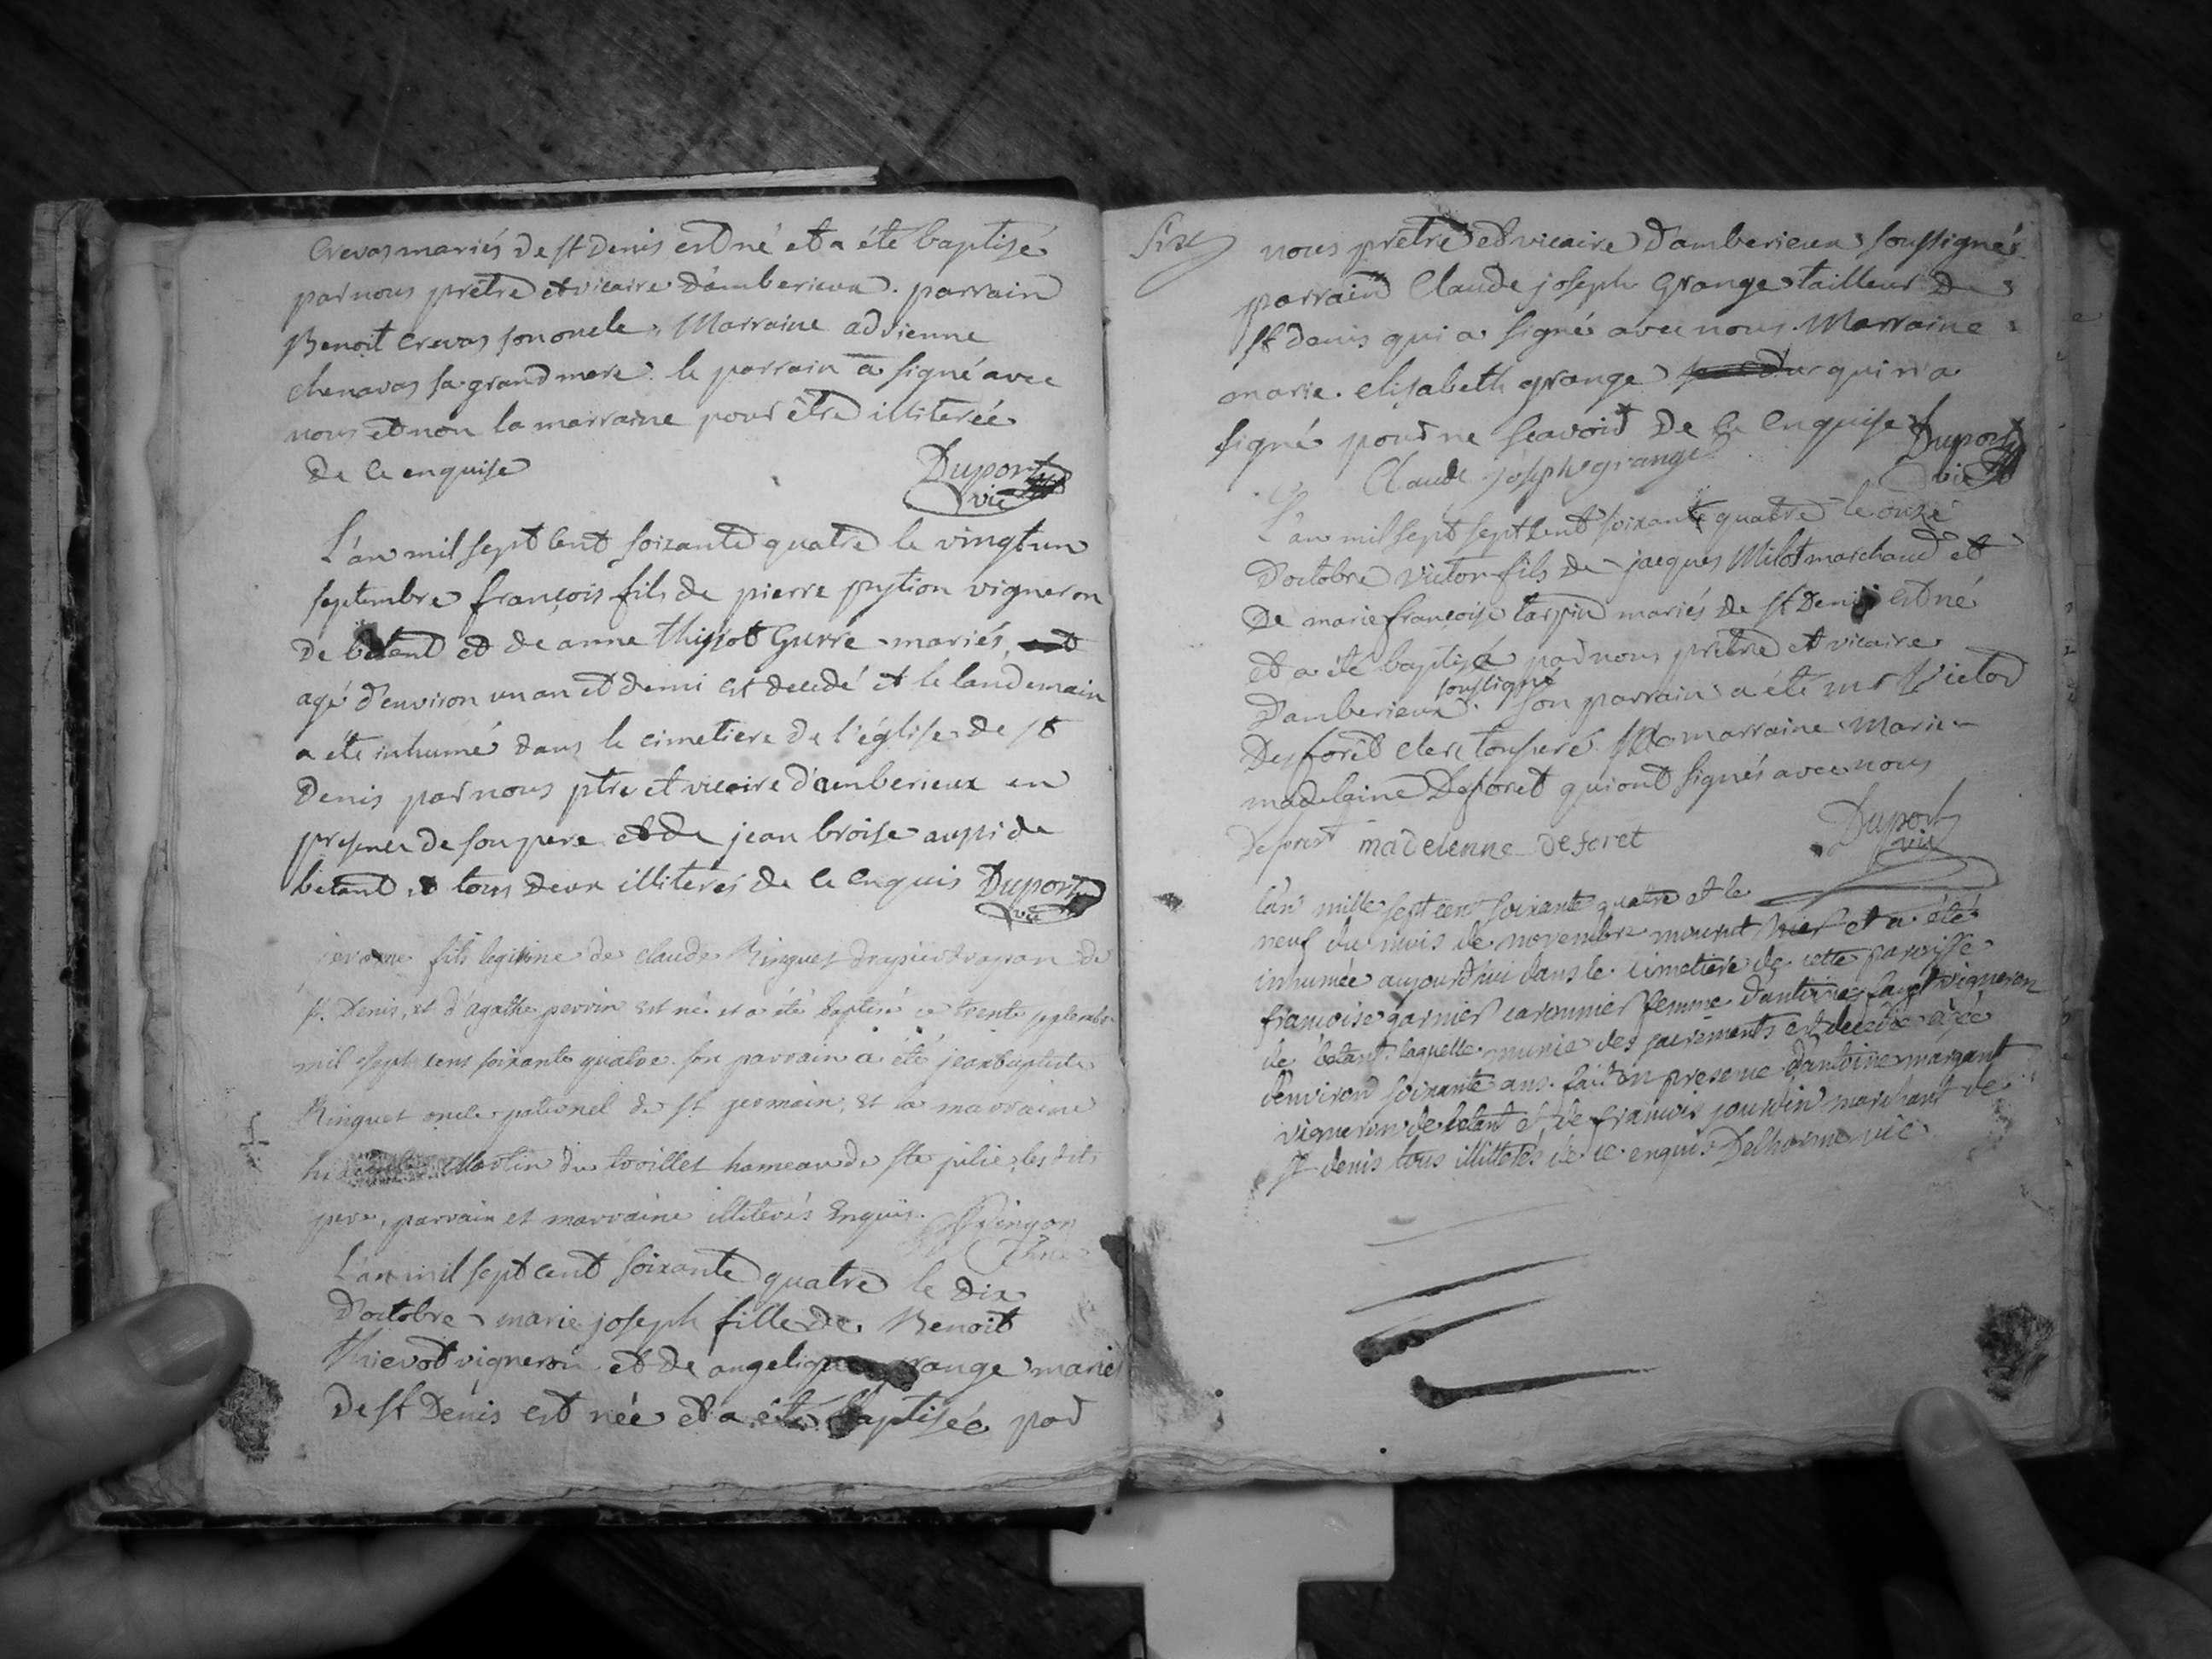 Crevas mariés de st Denis est né et a été baptisé
par nous prêtre et vicaire d'amberieux. parrain
Benoit Crevas son oncle, Marraine adrienne
chenavas sa grand mere. le parrain a signé avec
nous et non la marraine pour être illiterée
de ce enquise
Duport
vic
L'an mil sept cent soixante quatre le vingt un
septembre françois fils de pierre vigneron
de betant et de anne thissot Gurre mariés,
agé d'environ un an et demi est decedé et le landemain
a été inhumé dans le cimetiere de l'église de st
Denis par nous ptre et vicaire d'amberieux en
presence de son pere et de jean broise aussi de
betant et tous deux illiterés de ce enquis Duport
vic
fils legitime de claude Ringuet de
st. Denis, et d'agathe perrin est né et a été baptisé ce trente septembre
mil sept cens soixante quatre. son parrain a été jean baptiste
Ringuet oncle paternel de st germain, et la marraine
Martin du hameau de ste julie, les dits
pere, parrain et marraine illiterés Enquis.
L'an mil sept cent soixante quatre le dix
d'octobre marie joseph fille de Benoit
Thievot vigneron et de angelique grange mariés
de st Denis est née et a été baptisée par
nous prêtre et vicaire d'amberieux soussigné
parrain Claude joseph Grange tailleur de
st denis qui a signé avec nous. Marraine
marie. elisabeth grange qui n'a
signé pour ne scavoir de ce enquise
Duport
vic
Claude joseph grange
L'an mil sept sept cent soixante quatre le onze
d'octobre victor fils de jacques Milot marchand et
de marie françoise tarpin mariés de st Denis est né
et a été baptisé par nous prêtre et vicaire
soussigné
d'amberieux. son parrain a été mr Victor
Desforêt clerc tonsuré. marraine Marie
madelaine Deforet qui ont signés avec nous
Deforest madelenne deforet
Duport
vic
L'an mille sept cent soixante quatre et le
neuf du mois de novembre mourut hier et a été
inhumée aujourd'hui dans le cimetiere de cette paroisse
françoise garnier femme d'antoine vigneron
de betant. laquelle munie des sacrements est decedée agée
d'environ soixante ans. fait en presence d'antoine margant
vigneron de betant et de françois jourdin marchant de
st denis tous illitterés de ce enquis Delhorme vic